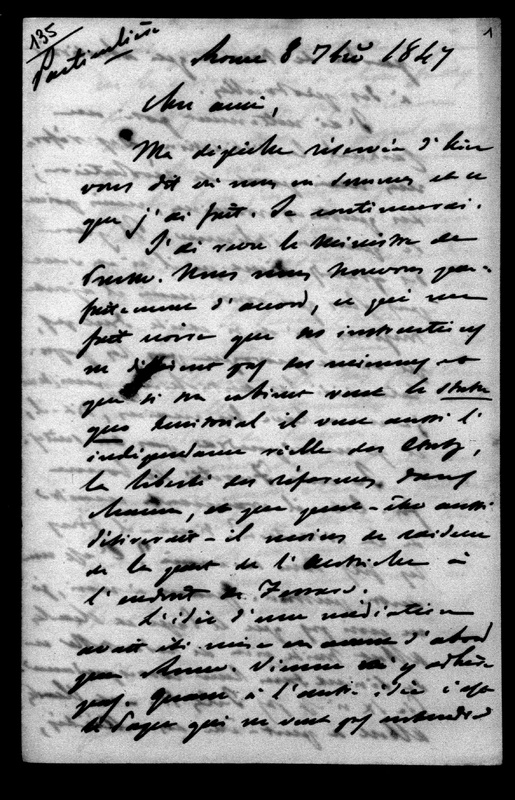 135
Particulière
1
Rome 8 7bre 1847
Mon ami,
Ma dépêche réservée d'hier
vous dit où nous en sommes et ce
que j'ai fait. Je continuerai.
J'ai revu le Ministre de
Prusse. Nous nous trouvons par-
faitement d'accord, ce qui me
fait croire que ses instructions
ne diffèrent pas des miennes et
que si son cabinet veut le statu
quo territorial il veut aussi l'
indépendance réelle des États,
la liberté des réformes dans
chacun, et que peut-être aussi
désirerait-il moins de raideur
de la part de l'Autriche à
l'endroit de Ferrare.
L'idée d'une médiation
avait été mise en avant d'abord
par Rome. Vienne n'y adhère
pas. Quant à l'autre idée c'est
le Pape qui ne veut pas entendre